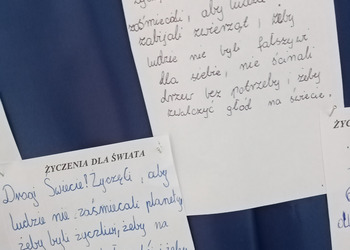 zaśmiecali, aby ludzie
zabijali zwierząt, żeby
ludzie nie byli fałszywi
dla siebie, nie ścinali
drzew bez potrzeby, żeby
zwalczyć głód na świecie.
ŻYCZENIA DLA ŚWIATA
Drogi Świecie! Życzę Ci, aby
ludzie nie zaśmiecali planety,
żeby byli życzliwi, żeby na
ŻYC